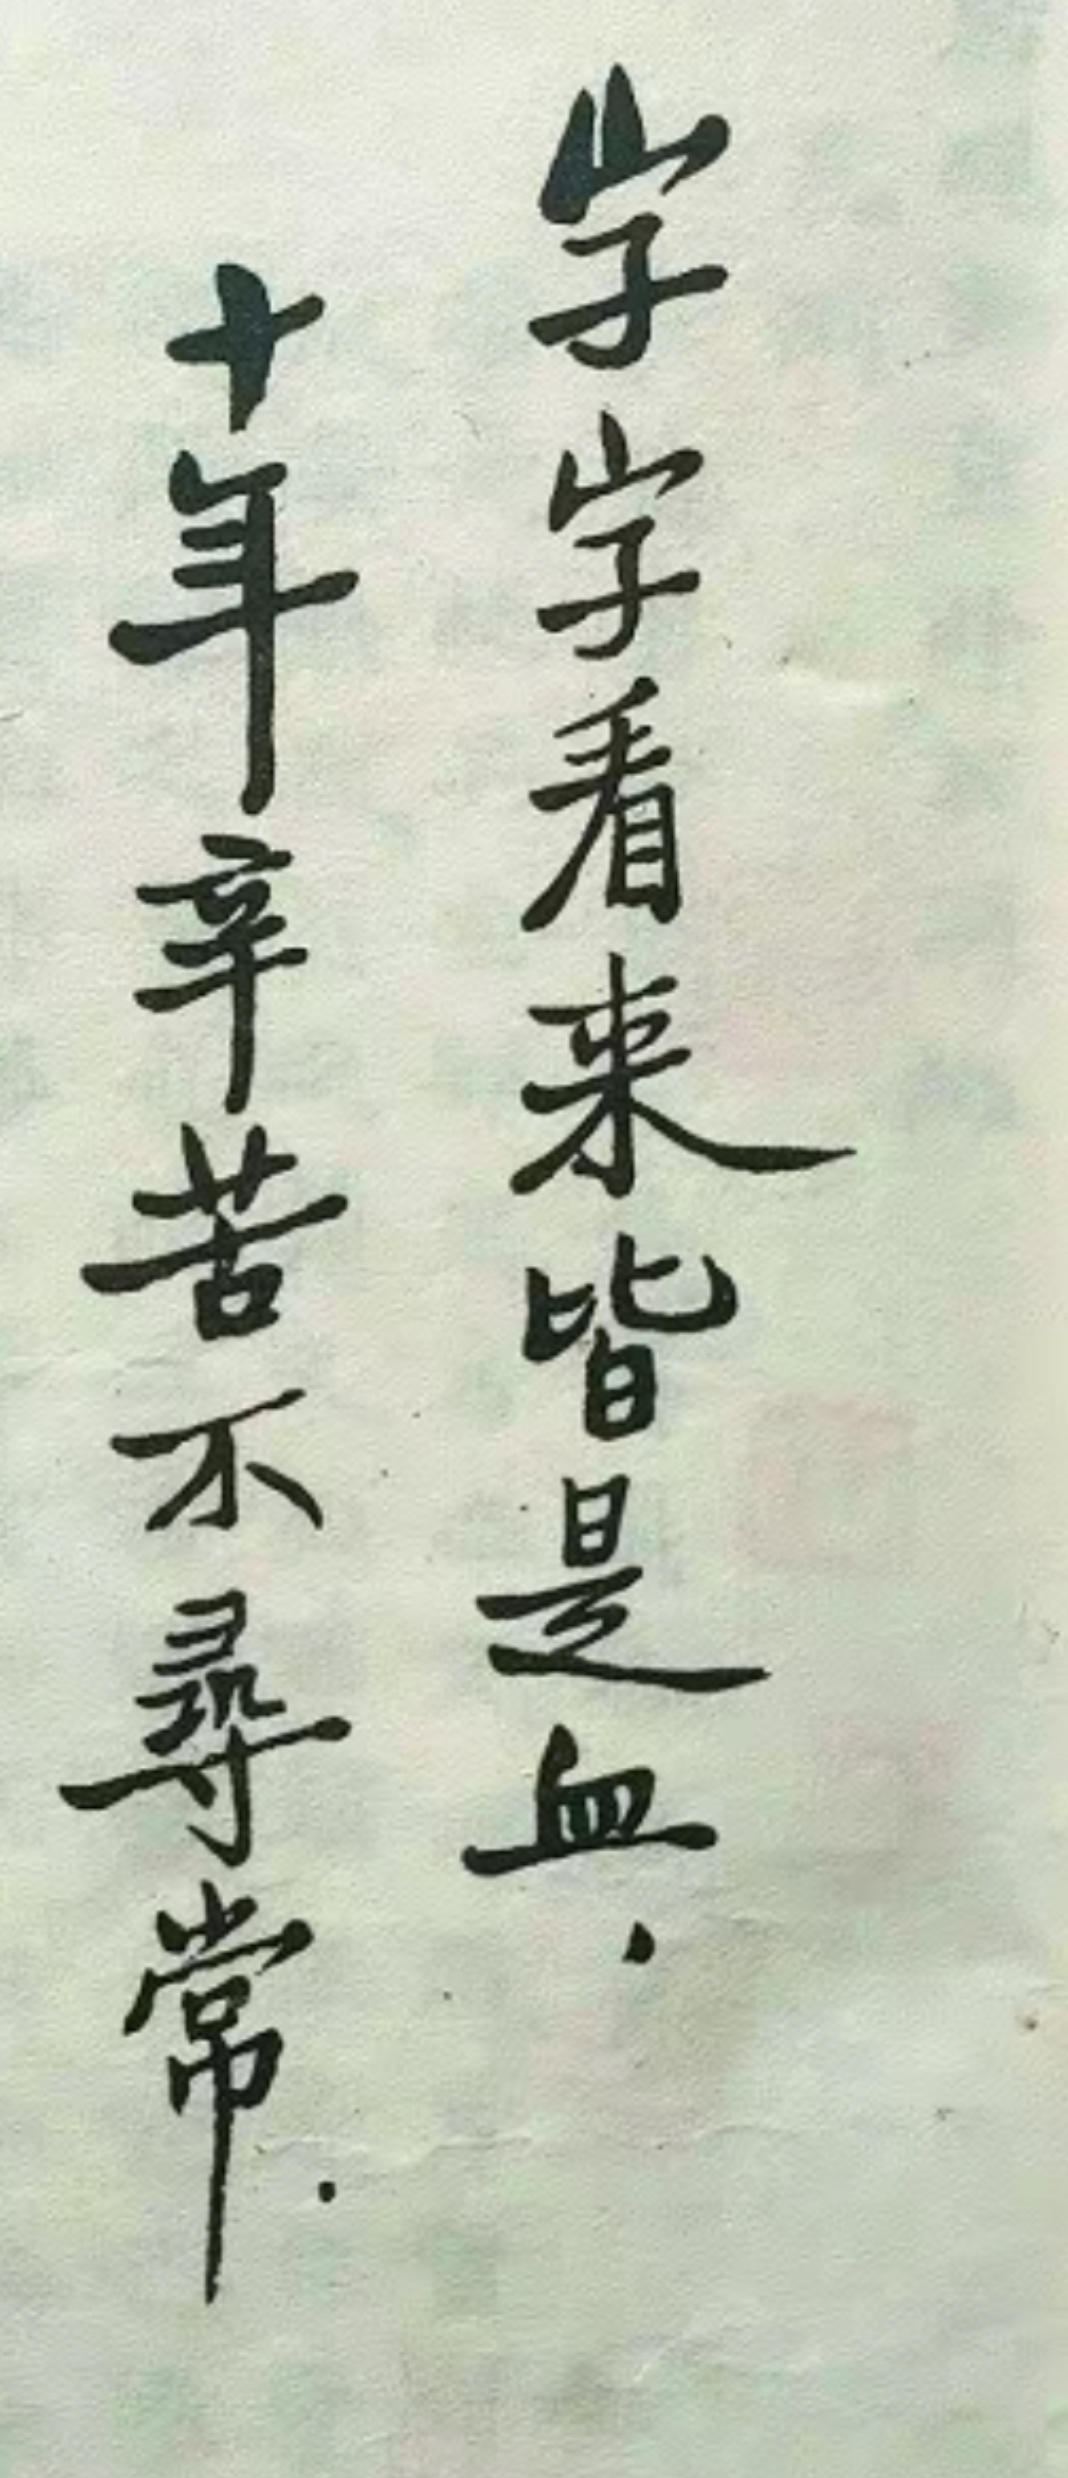 字字看来皆是血，
十年辛苦不尋常．